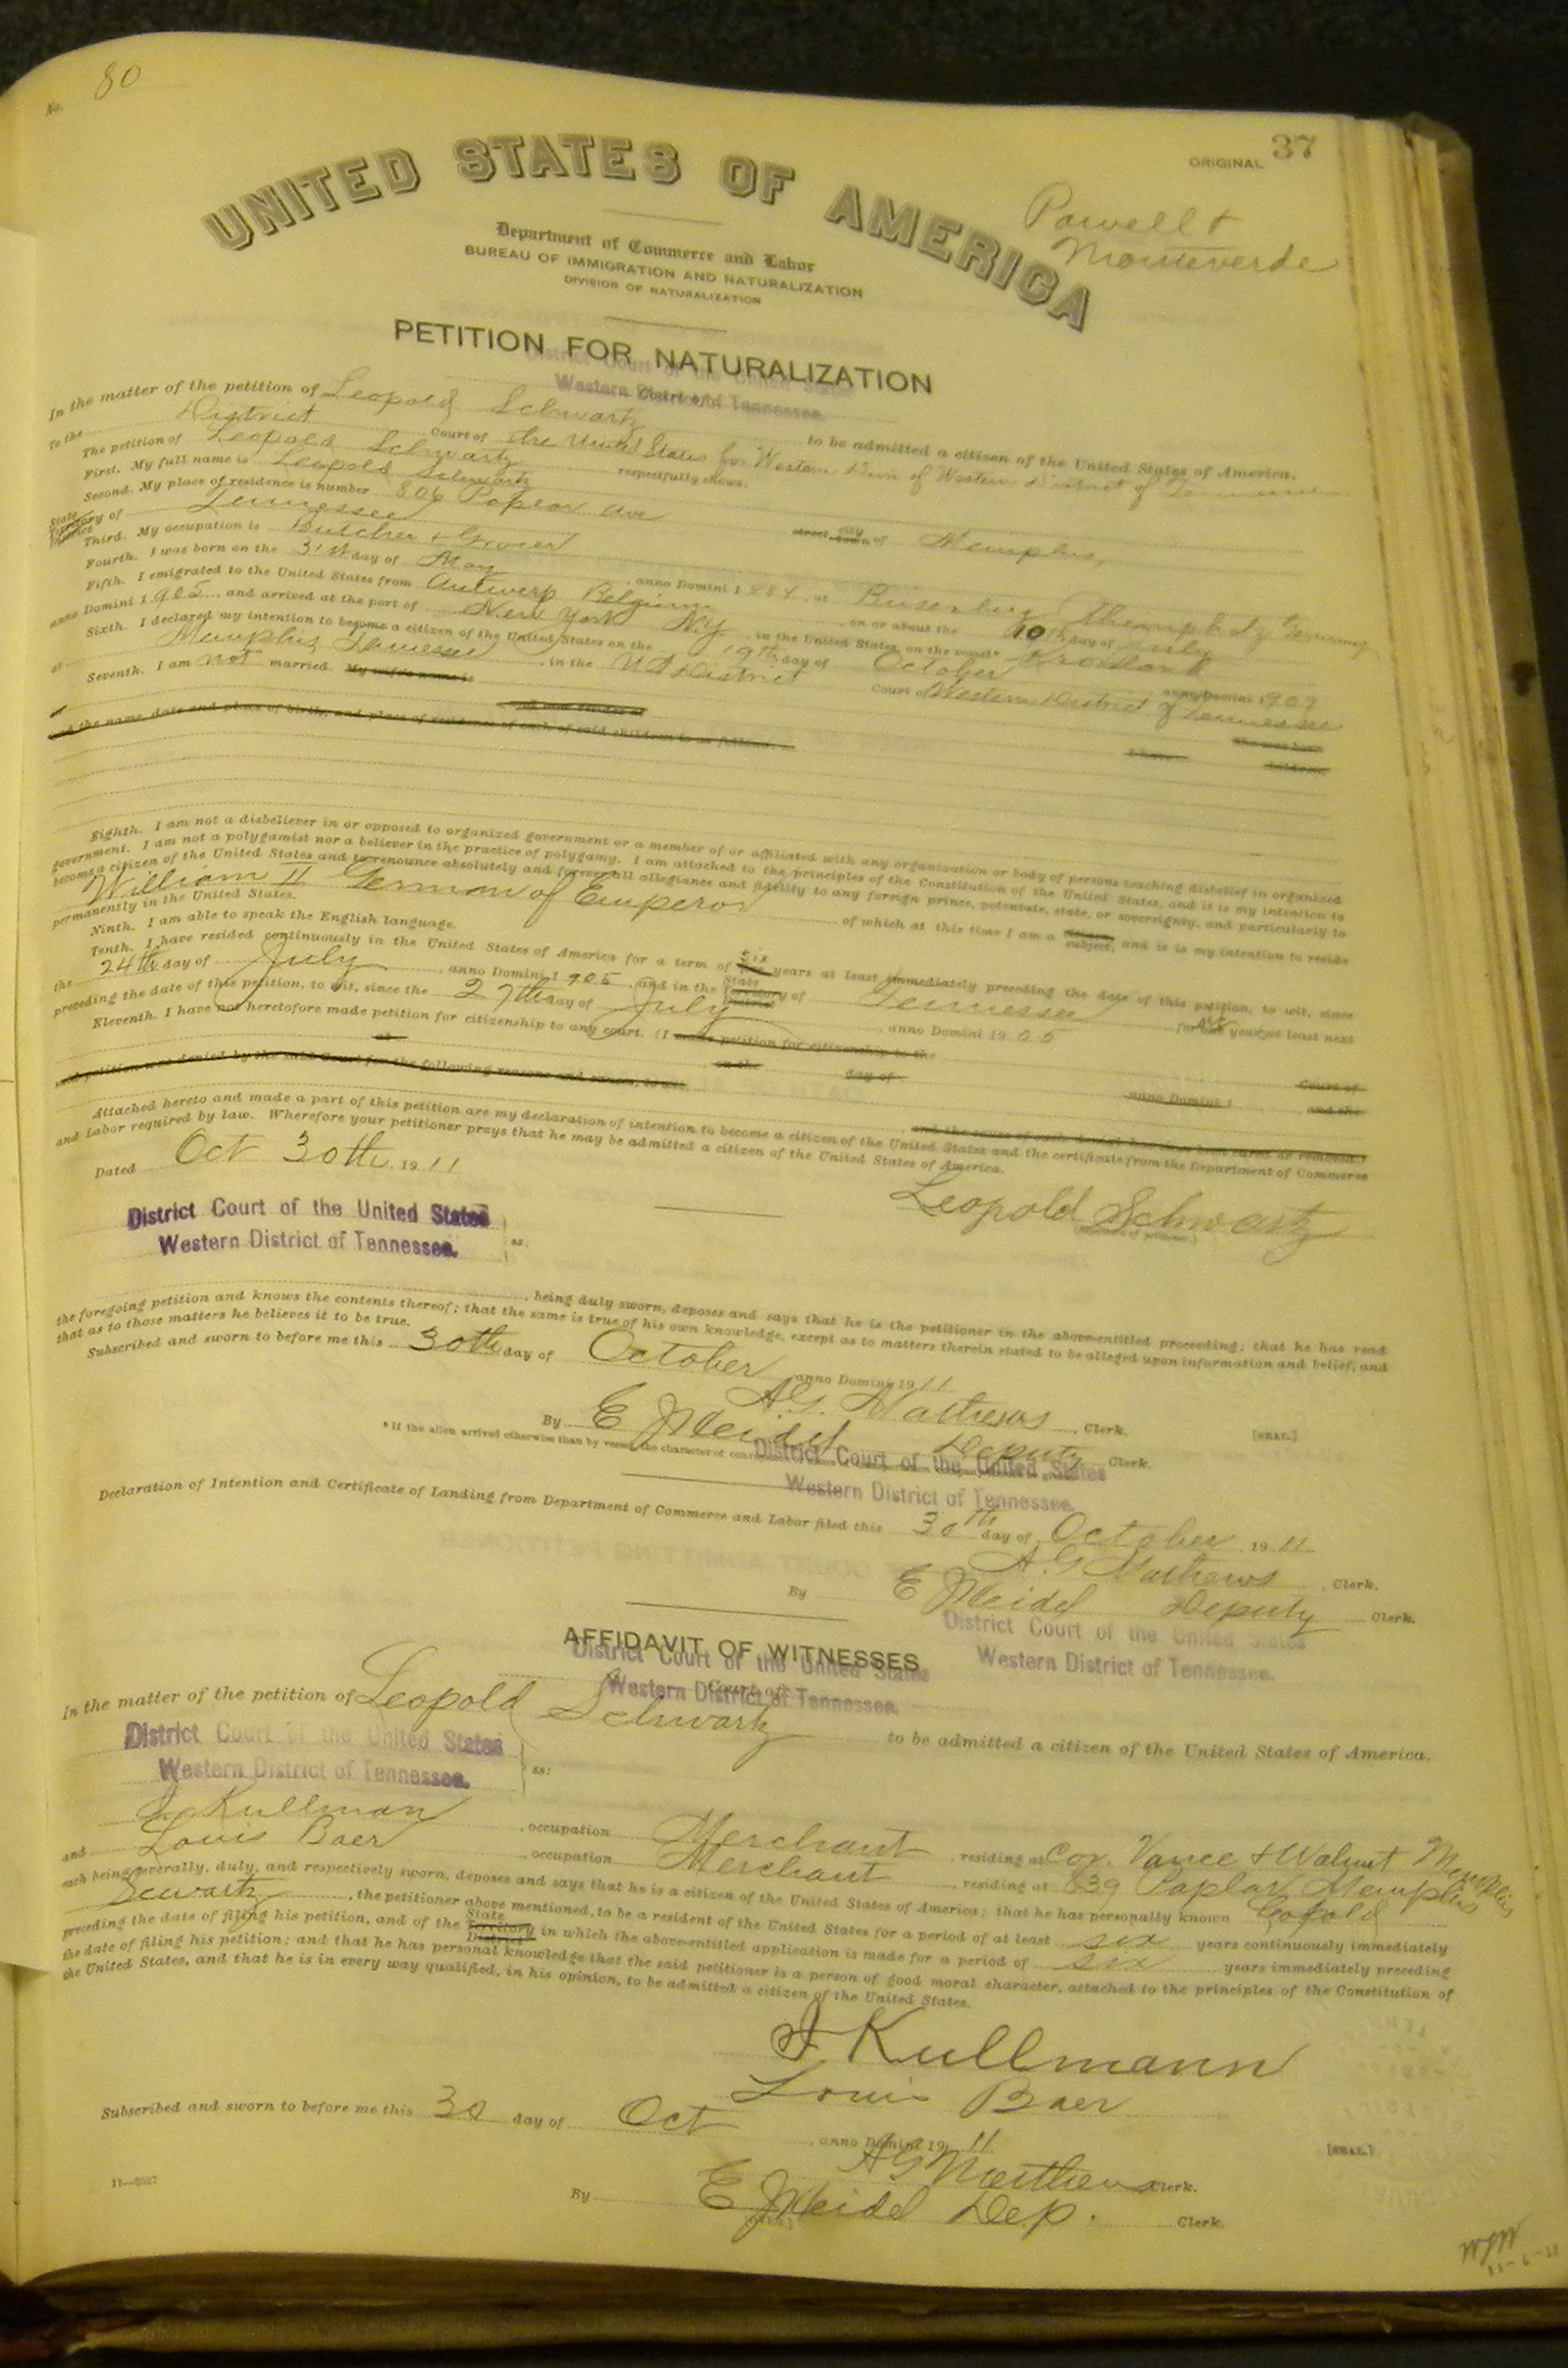 No. 80
ORIGINAL 37
UNITED STATES OF AMERICA
Powell &
Monteverde
Department of Commerce and Labor
BUREAU OF IMMIGRATION AND NATURALIZATION
DIVISION OF NATURALIZATION
PETITION FOR NATURALIZATION
District Court of the United States
Western District of Tennessee.
In the matter of the petition of Leopold Schwartz to be admitted a citizen of the United States of America.
To the District Court of the United States for Western Divn of Western District of Tennessee
The petition of Leopold Schwartz respectfully shows:
First. My full name is Leopold Schwartz
Second. My place of residence is number 806 Poplar Ave street, city of Memphis,
State of Tennessee
Third. My occupation is Butcher & Grocer
Fourth. I was born on the 31st day of May, anno Domini 1884, at Germany
Fifth. I emigrated to the United States from Antwerp Belgium, on or about the 10th day of July
anno Domini 1905, and arrived at the port of New York N.Y., in the United States, on the vessel*
Sixth. I declared my intention to become a citizen of the United States on the 19th day of October anno Domini 1909
at Memphis Tennessee, in the US District Court of Western District of Tennessee
Seventh. I am not married. My wife's name is
and the name, date and place of birth, and place of residence of each of said children is as follows:
Eighth. I am not a disbeliever in or opposed to organized government or a member of or affiliated with any organization or body of persons teaching disbelief in organized
government. I am not a polygamist nor a believer in the practice of polygamy. I am attached to the principles of the Constitution of the United States, and it is my intention to
become a citizen of the United States and to renounce absolutely and forever all allegiance and fidelity to any foreign prince, potentate, state, or sovereignty, and particularly to
William II German of Emperor of which at this time I am a subject, and it is my intention to reside
permanently in the United States.
Ninth. I am able to speak the English language.
Tenth. I have resided continuously in the United States of America for a term of six years at least immediately preceding the date of this petition, to wit, since
the 24th day of July, anno Domini 1905, and in the State of Tennessee for six years at least next
preceding the date of this petition, to wit, since the 27th day of July, anno Domini 1905
Eleventh. I have not heretofore made petition for citizenship to any court. (I made petition for citizenship to the Court of
at on the day of anno Domini 1 and the
said petition was denied by the said Court for the following reasons and causes, to wit,
and the cause of such denial has since been cured or removed.)
Attached hereto and made a part of this petition are my declaration of intention to become a citizen of the United States and the certificate from the Department of Commerce
and Labor required by law. Wherefore your petitioner prays that he may be admitted a citizen of the United States of America.
Dated Oct 30th, 1911
Leopold Schwartz
(Signature of petitioner.)
District Court of the United States
Western District of Tennessee. ss:
, being duly sworn, deposes and says that he is the petitioner in the above-entitled proceeding; that he has read
the foregoing petition and knows the contents thereof; that the same is true of his own knowledge, except as to matters therein stated to be alleged upon information and belief, and
that as to those matters he believes it to be true.
Subscribed and sworn to before me this 30th day of October anno Domini 1911
A.G. Mathews, Clerk. [SEAL.]
By E J Meidel Deputy Clerk.
District Court of the United States
Western District of Tennessee.
Declaration of Intention and Certificate of Landing from Department of Commerce and Labor filed this 30th day of October, 1911
A.G Mathews, Clerk.
By E J Meidel Deputy Clerk.
District Court of the United States
Western District of Tennessee.
AFFIDAVIT OF WITNESSES
District Court of the United States
Western District of Tennessee.
In the matter of the petition of Leopold Schwartz to be admitted a citizen of the United States of America.
District Court of the United States
Western District of Tennessee. ss:
J Kullman, occupation Merchant, residing at Cor. Vance & Walnut Memphis
and Louis Baer, occupation Merchant, residing at 839 Poplar Memphis
each being severally, duly, and respectively sworn, deposes and says that he is a citizen of the United States of America; that he has personally known Leopold
Scwartz, the petitioner above mentioned, to be a resident of the United States for a period of at least six years continuously immediately
preceding the date of filing his petition, and of the State Territory District in which the above-entitled application is made for a period of six years immediately preceding
the date of filing his petition; and that he has personal knowledge that the said petitioner is a person of good moral character, attached to the principles of the Constitution of
the United States, and that he is in every way qualified, in his opinion, to be admitted a citizen of the United States.
J Kullmann
Louis Baer
Subscribed and sworn to before me this 30 day of Oct, anno Domini 1911
[SEAL.]
A G Matthews Clerk.
By E J Meidel Dep. Clerk.